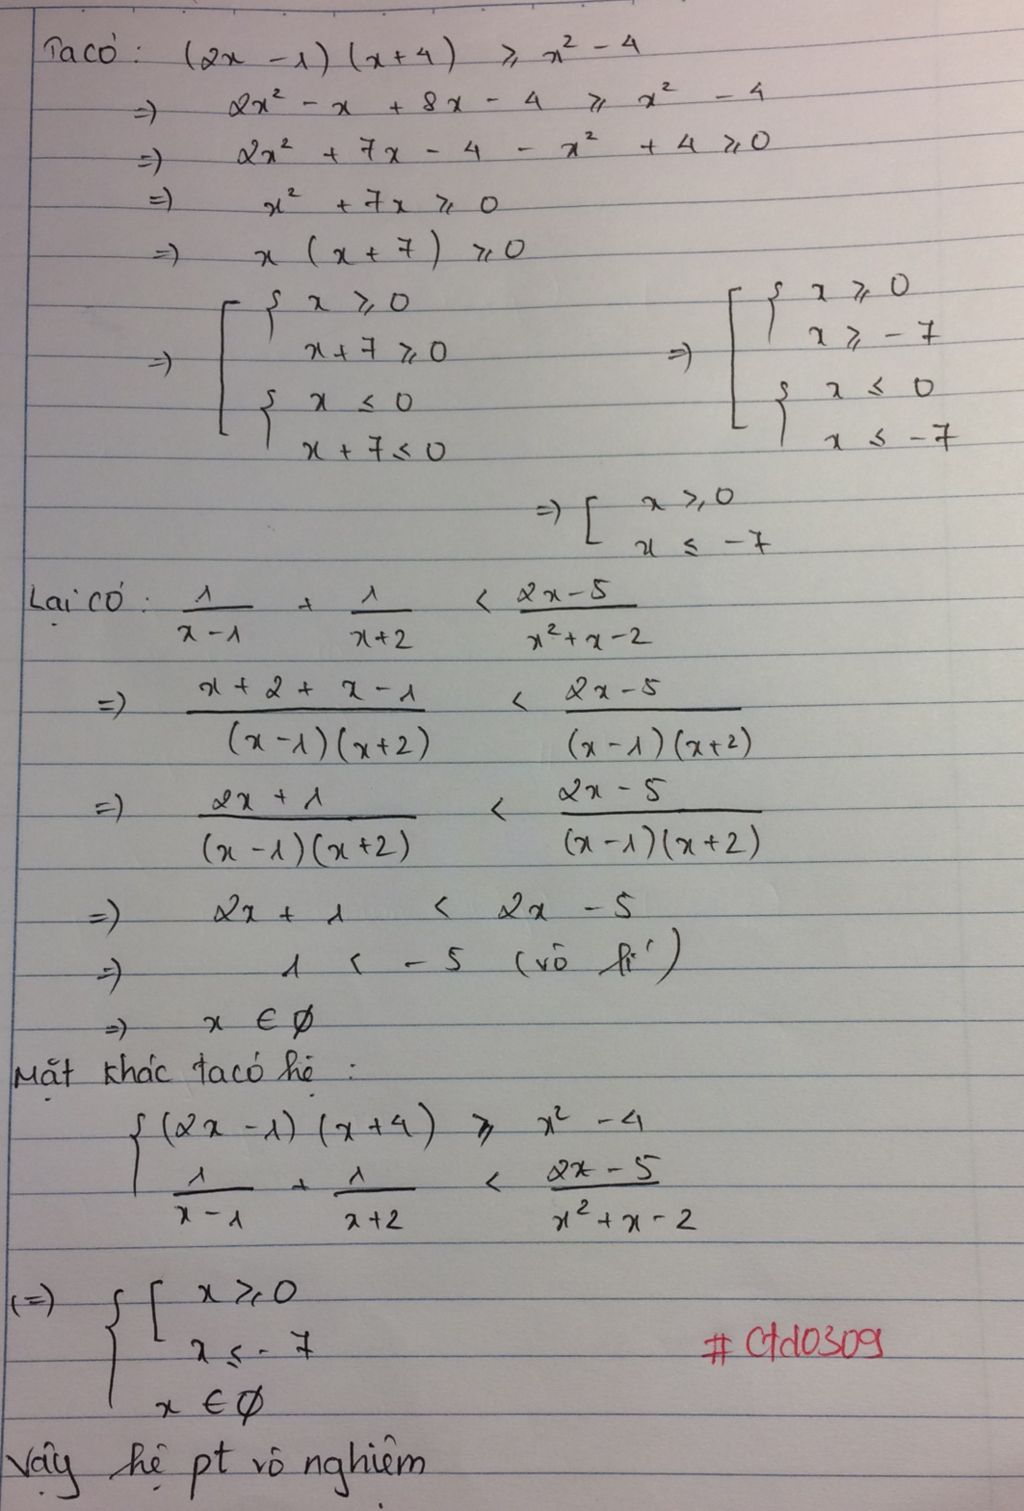 Ta có : (2x - 1) (x+4) ⩾ x² - 4
=) 2x² - x + 8x - 4 ⩾ x² - 4
=) 2x² + 7x - 4 - x² + 4 ⩾ 0
=) x² + 7x ⩾ 0
=) x (x + 7) ⩾ 0
=) [ { x ⩾ 0 x + 7 ⩾ 0 { x ≤ 0 x + 7 ≤ 0 =) [ { x ⩾ 0 x ⩾ - 7 { x ≤ 0 x ≤ - 7
=) [ x ⩾ 0 x ≤ - 7
Lại có : 1/(x - 1) + 1/(x+2) < (2x - 5)/(x² + x - 2)
=) (x + 2 + x - 1)/((x - 1)(x+2)) < (2x - 5)/((x - 1)(x+2))
=) (2x + 1)/((x - 1)(x+2)) < (2x - 5)/((x - 1)(x+2))
=) 2x + 1 < 2x - 5
=) 1 < - 5 (vô lí)
=) x ∈ ∅
Mặt khác ta có hệ :
{ (2x - 1) (x+4) ⩾ x² - 4
1/(x - 1) + 1/(x+2) < (2x - 5)/(x² + x - 2)
(=) { [ x ⩾ 0
x ≤ - 7
x ∈ ∅
# Ctd0309
Vậy hệ pt vô nghiệm